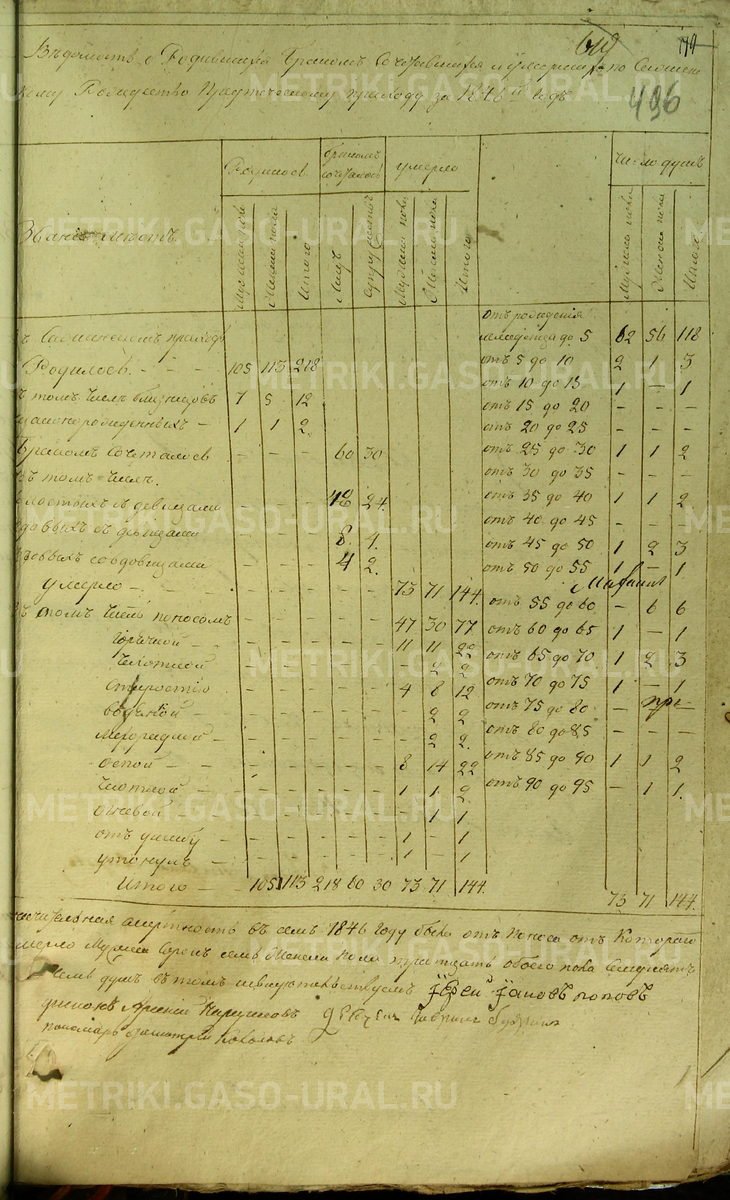 496
Вѣдомость о Родившихся бракомъ Сочетавшихся и умершихъ по
Рождество Предтеченскому приходу за 1846 й годъ
Родилось бракомъ сочеталось умерло число душъ
Званіе мѣстъ
Мужеска пола Женска пола Итого Лицъ Супружествъ Мужеска пола Женска пола Итого Мужеска пола Женска пола Итого
отъ рождения
приходѣ до 5 62 56 118
Родилось - - - 105 113 218 отъ 5 до 10 2 1 3
томъ числѣ близнецовъ 7 5 12 отъ 10 до 15 1 - 1
отъ 15 до 20 - - -
незаконнорожденныхъ - 1 1 2 отъ 20 до 25 - - -
Бракомъ сочеталось - - - 60 30 отъ 25 до 30 1 1 2
въ томъ числѣ отъ 30 до 35 - - -
холостыхъ съ девицами - - - 48 24 отъ 35 до 40 1 1 2
отъ 40 до 45 - - -
вдовыхъ съ девицами - - - 8 4 отъ 45 до 50 1 2 3
вдовыхъ со вдовицами - - - 4 2 отъ 50 до 55 1 - 1
умерло - - - - - - 73 71 144
отъ 55 до 60 - 6 6
въ томъ числѣ поносомъ - - - - - 47 30 77 отъ 60 до 65 1 - 1
горячкой - - - - - - 11 11 22
отъ 65 до 70 1 2 3
чахоткой - - - - - - 2 2
старостію - - - - - 4 8 12 отъ 70 до 75 1 - 1
водяной - - - - - - 2 2 отъ 75 до 80 -
- - - - - - 2 2 отъ 80 до 85 - - -
оспой - - - - - - 8 14 22 отъ 85 до 90 1 1 2
- - - - - - 1 1 2 отъ 90 до 95 - 1 1
- - - - - - 1 1
отъ ушибу - - - - - 1 - 1
утонулъ - - - - - - 1 - 1
Итого - 105 113 218 60 30 73 71 144 73 71 144
значительная смертность въ семъ 1846 году была отъ поноса отъ Котораго
умерло Мужеска Сорокъ семь Женска пола тритцать обоего пола Семдесятъ
семь душъ въ томъ Іерей Іаковъ поповъ
диаконъ
пономарь